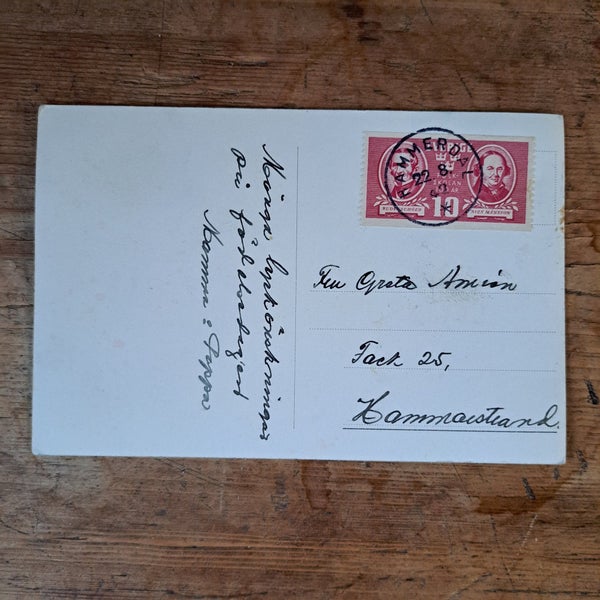 Många lyckönskningar
på födelsedagen
Mamma o Pappa
HAMMERDAL
22.8
10
SVEN MÅNSSON
Fru Greta Amrén
Fack 25,
Hammarstrand.